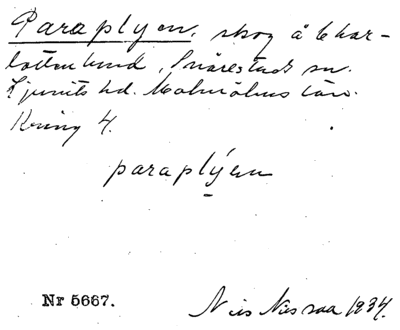 Paraplyen, skog å Char-
lottenlund, Snårestads sn.
Ljunits hd. Malmöhus län.
Kring 4.
paraplýen
Nr 5667.
Nils Nilsson 1934.